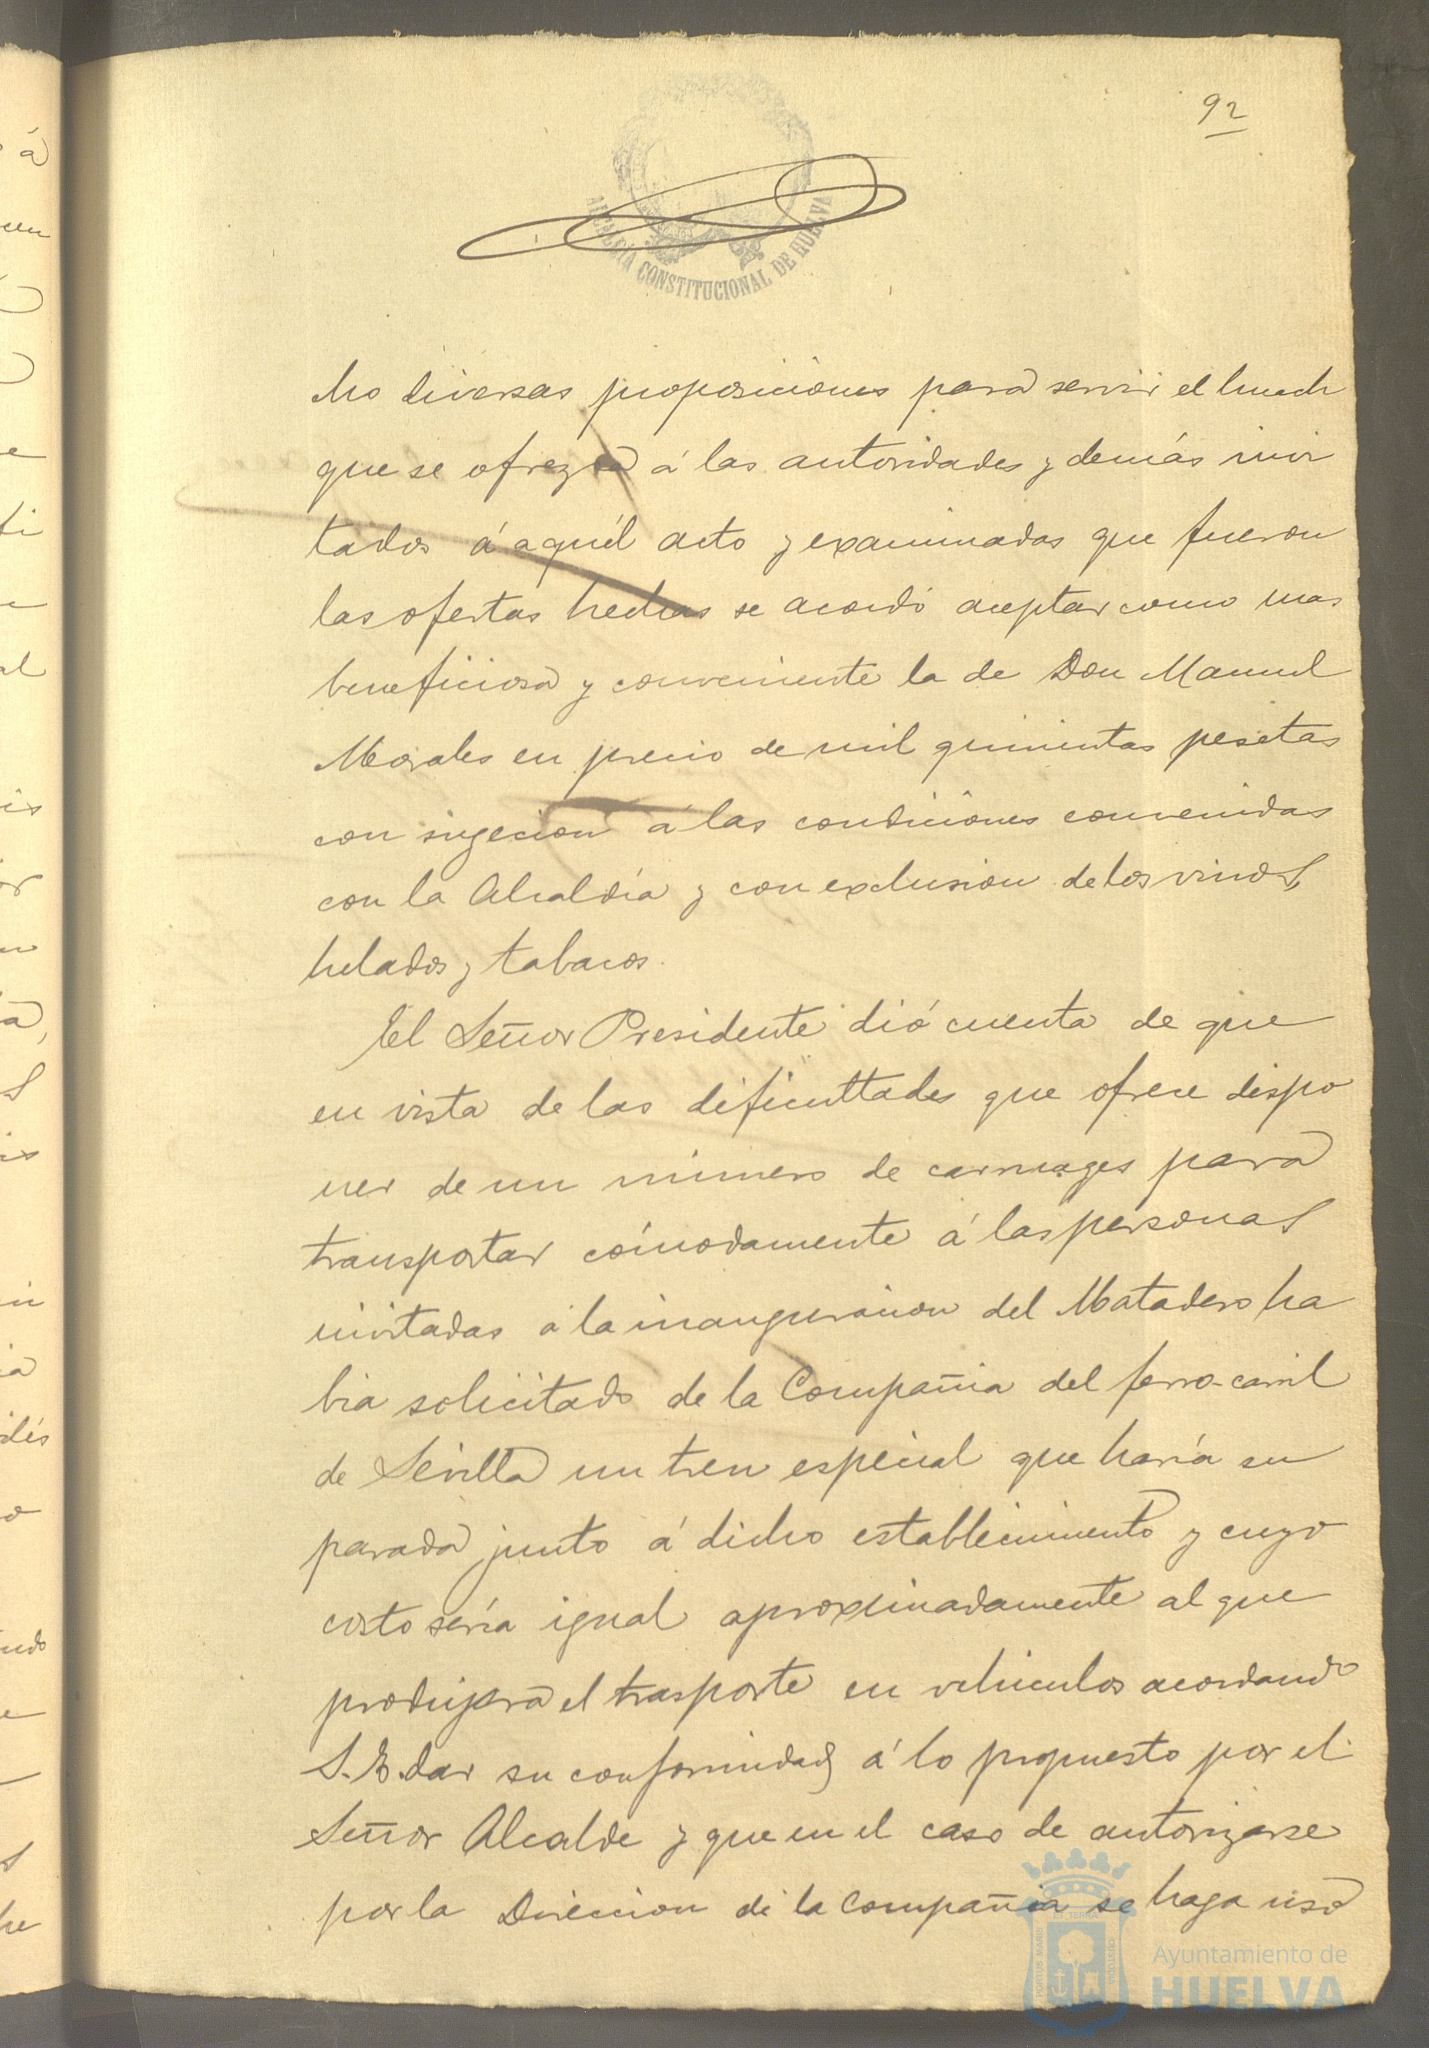 92
ALCALDÍA CONSTITUCIONAL DE HUELVA
cho diversas proposiciones para servir el lunch
que se ofrezca á las autoridades y demás invi
tados á aquél acto y examinadas que fueron
las ofertas hechas se acordó aceptar como mas
beneficiosa y conveniente la de Don Manuel
Morales en precio de mil quinientas pesetas
con sugecion á las condiciones convenidas
con la Alcaldía y con exclusion de los vinos,
helados y tabacos.
El Señor Presidente dió cuenta de que
en vista de las dificultades que ofrece dispo
ner de un número de carruages para
transportar cómodamente á las personas
invitadas á la inauguracion del Matadero ha
bia solicitado de la Compañia del ferro-carril
de Sevilla un tren especial que haría su
parada junto á dicho establecimiento y cuyo
costo sería igual aproximadamente al que
produjera el trasporte en vehiculos acordando
S. E. dar su conformidad á lo propuesto por el
Señor Alcalde y que en el caso de autorizarse
por la Direccion de la Compañia se haga uso
Ayuntamiento de
HUELVA